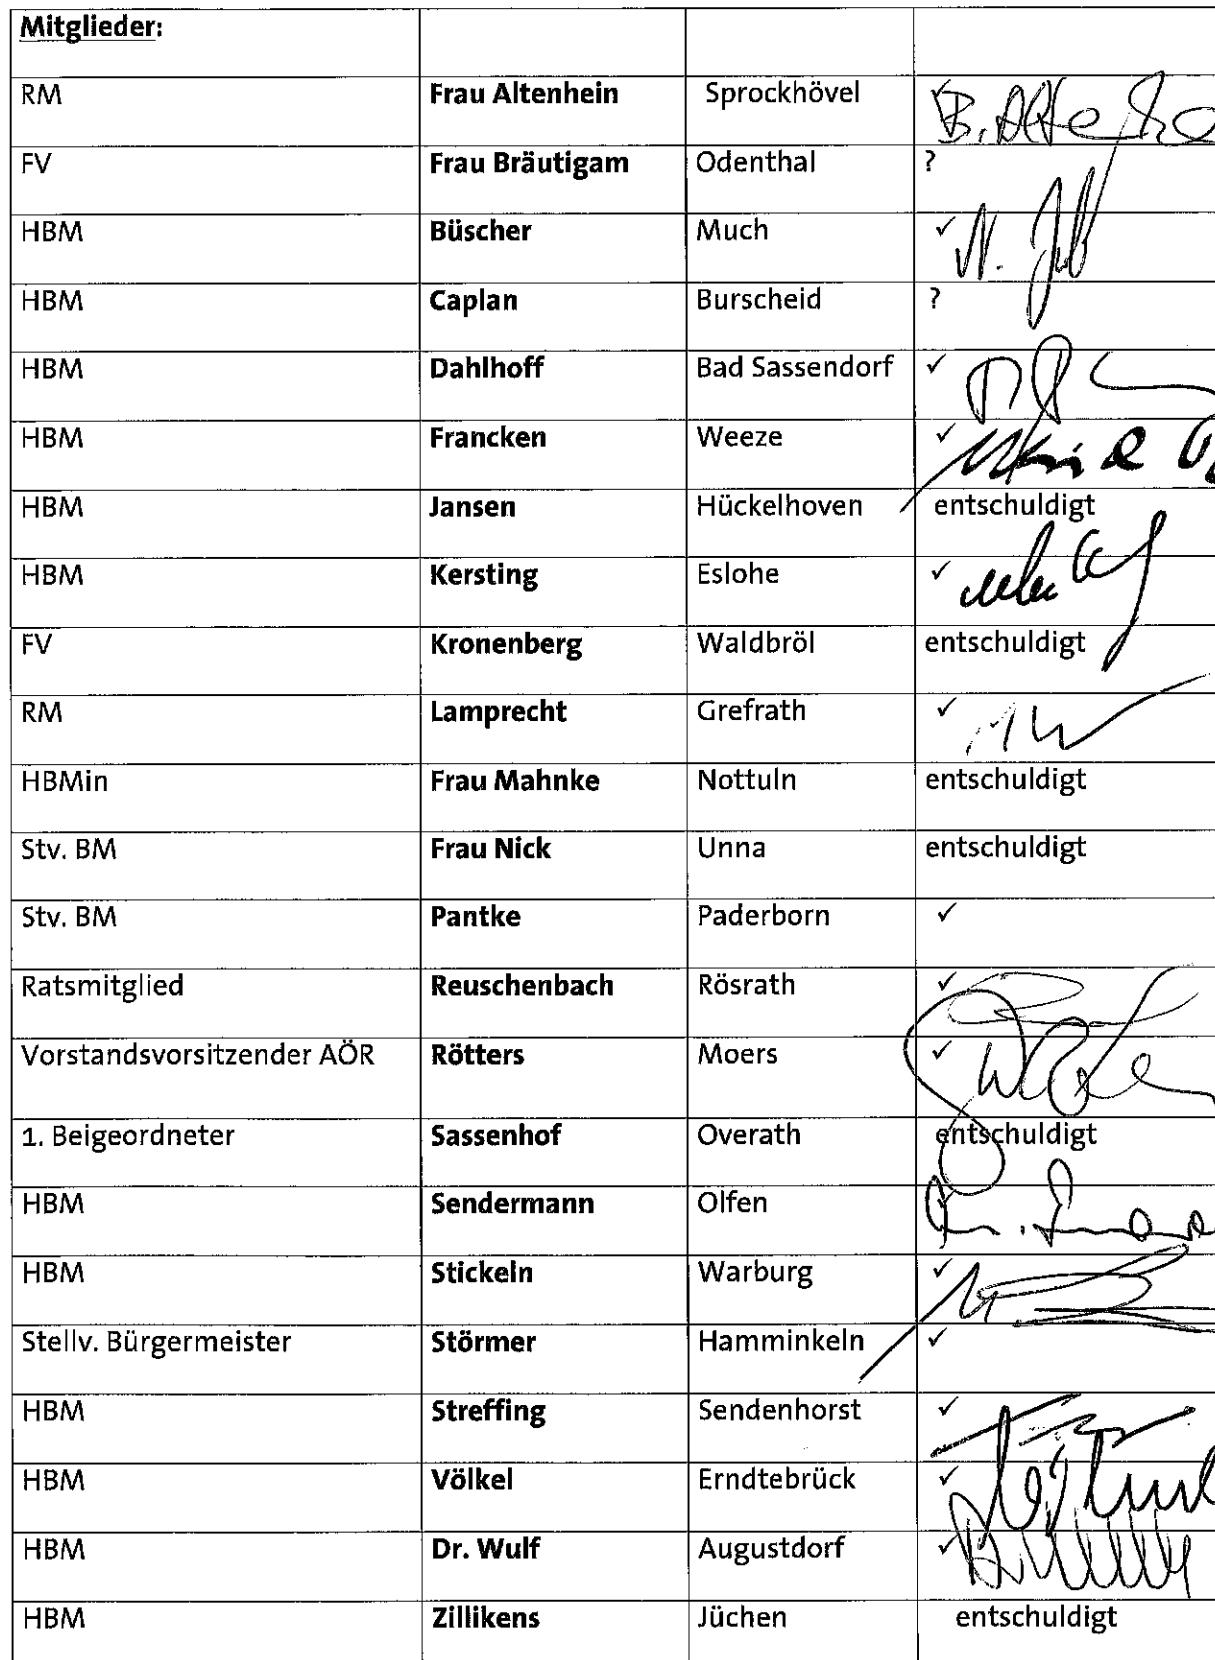 Mitglieder:
RM Frau Altenhein Sprockhövel ✓
FV Frau Bräutigam Odenthal ?
HBM Büscher Much ✓
HBM Caplan Burscheid ?
HBM Dahlhoff Bad Sassendorf ✓
HBM Francken Weeze ✓
HBM Jansen Hückelhoven entschuldigt
HBM Kersting Eslohe ✓
FV Kronenberg Waldbröl entschuldigt
RM Lamprecht Grefrath ✓
HBMin Frau Mahnke Nottuln entschuldigt
Stv. BM Frau Nick Unna entschuldigt
Stv. BM Pantke Paderborn ✓
Ratsmitglied Reuschenbach Rösrath ✓
Vorstandsvorsitzender AÖR Rötters Moers ✓
1. Beigeordneter Sassenhof Overath entschuldigt
HBM Sendermann Olfen ✓
HBM Stickeln Warburg ✓
Stellv. Bürgermeister Störmer Hamminkeln ✓
HBM Streffing Sendenhorst ✓
HBM Völkel Erndtebrück ✓
HBM Dr. Wulf Augustdorf ✓
HBM Zillikens Jüchen entschuldigt